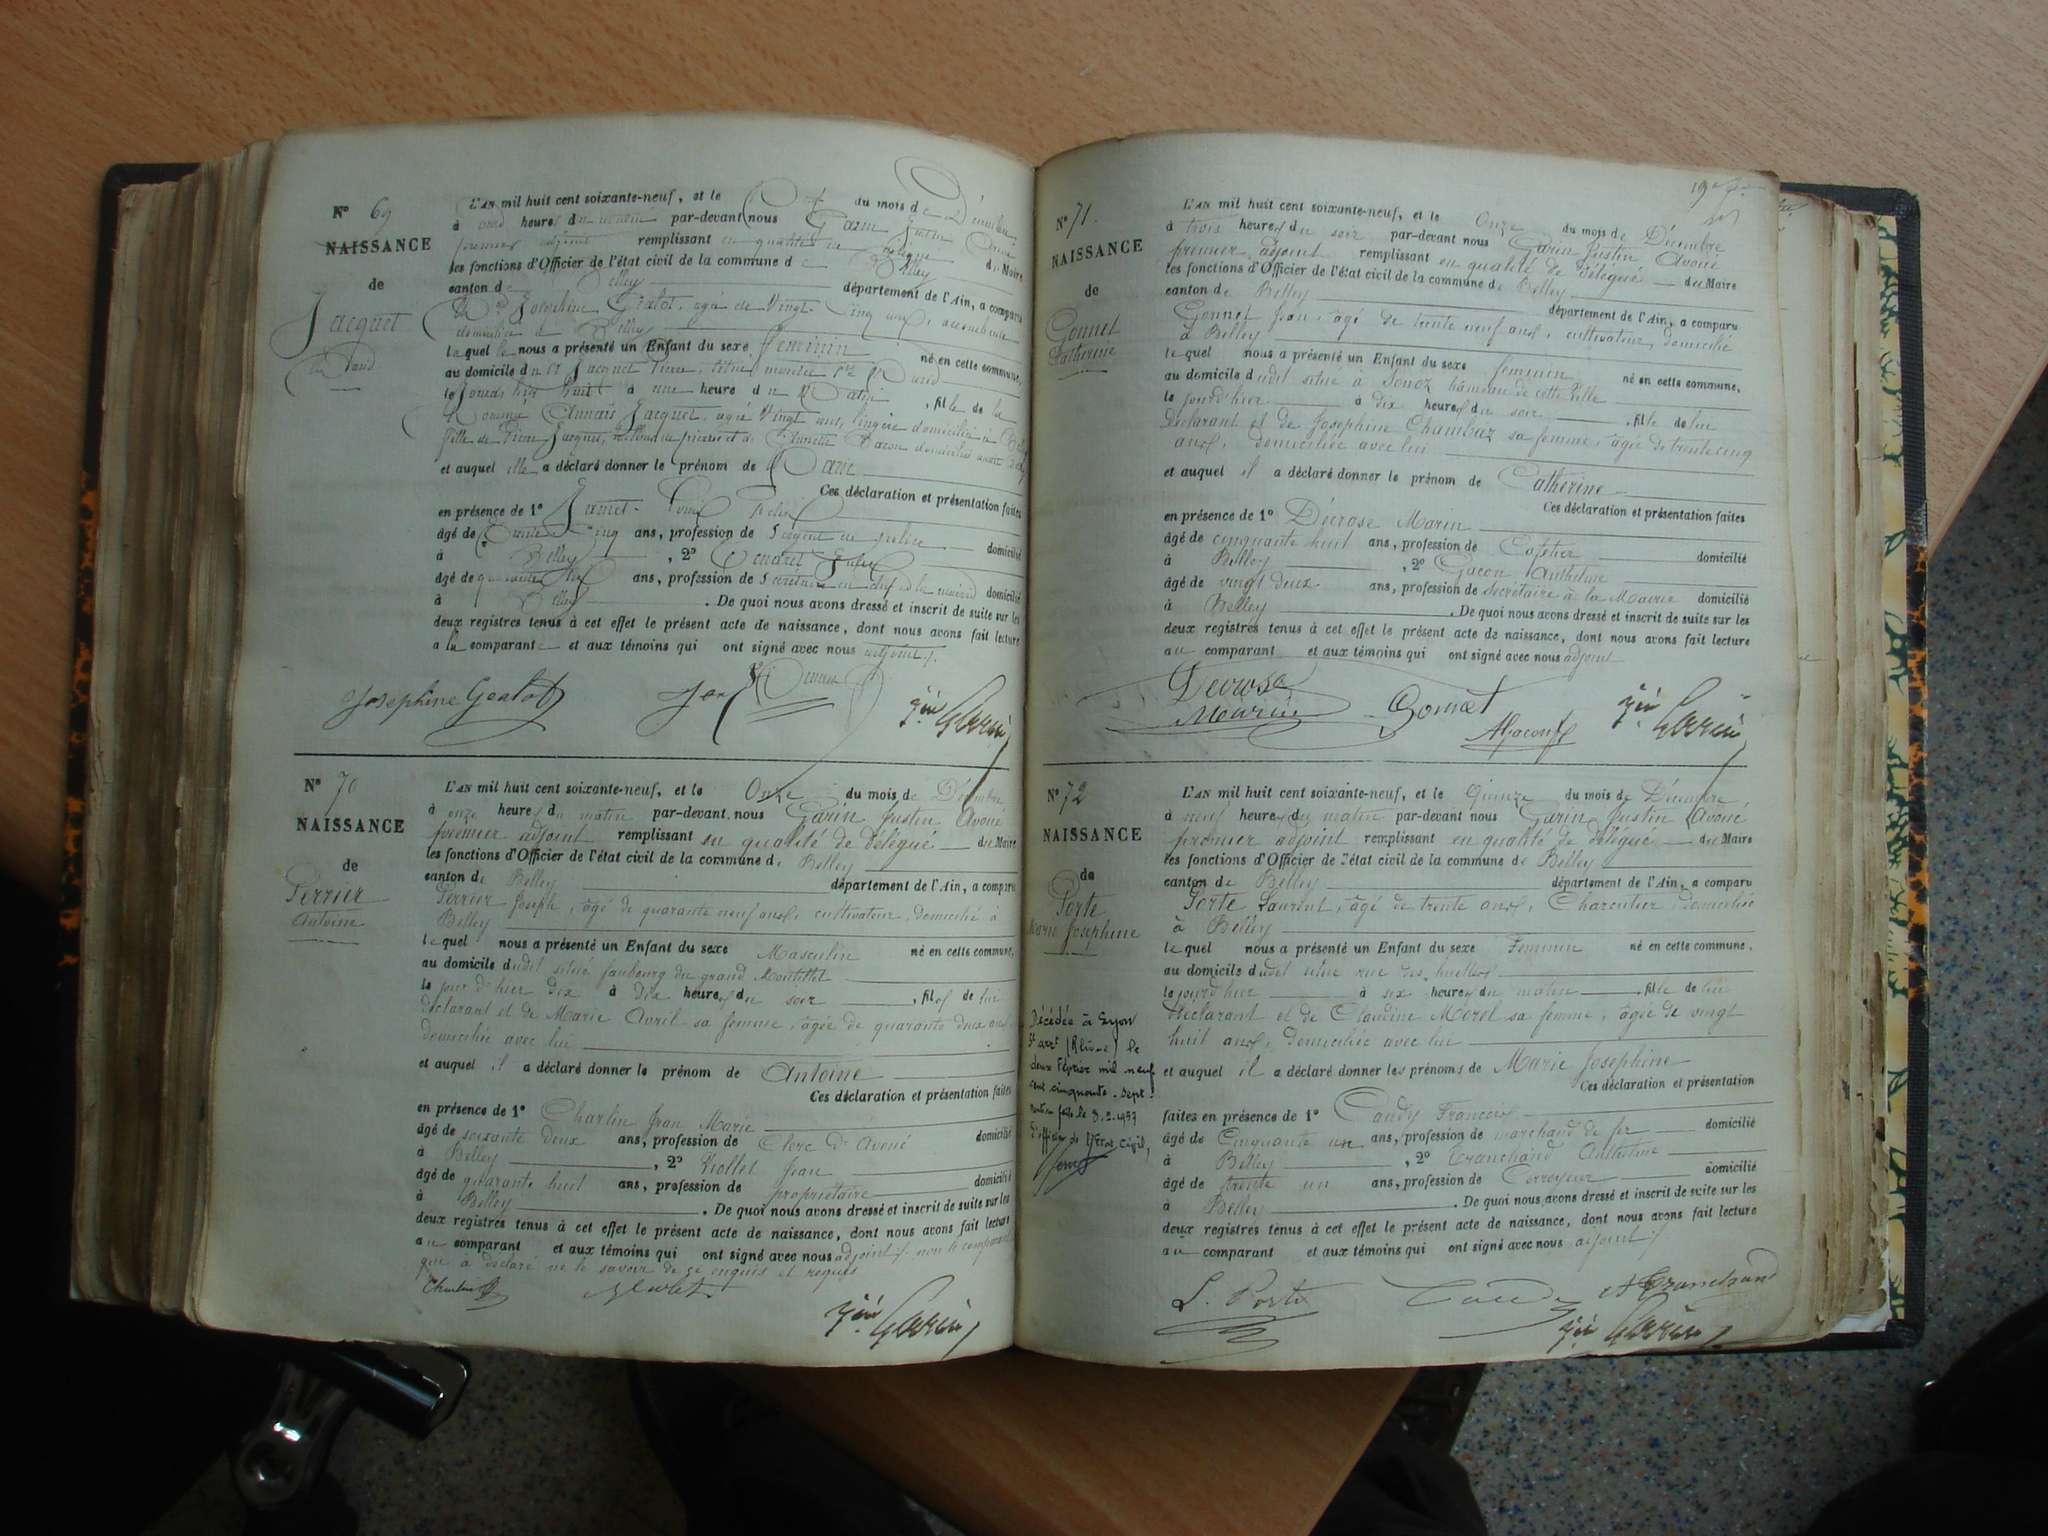 N° 69
NAISSANCE
de
Jacquet
L'AN mil huit cent soixante-neuf, et le du mois de Décembre
à heures du matin par-devant nous Garin Justin Avoué
premier adjoint remplissant en qualité de Délégué du Maire
les fonctions d'Officier de l'état civil de la commune de Belley
canton de Belley département de l'Ain, a comparu
Joséphine agée de Vingt Cinq ans, accoucheuse
domiciliée à Belley
laquelle nous a présenté un Enfant du sexe Féminin né en cette commune,
au domicile du Sr Jacquet Pierre,
le jeudi huit à une heure du Matin, fille de la
Jacquet, agée Vingt ans, lingère domiciliée à Belley
fille de Pierre Jacquet, et de domiciliés
et auquel elle a déclaré donner le prénom de Marie
Ces déclaration et présentation faites
en présence de 1° Jamet Louis
âgé de ans, profession de Sergent de police domicilié
à Belley, 2°
âgé de quarante ans, profession de Secrétaire en chef de la mairie domicilié
à Belley. De quoi nous avons dressé et inscrit de suite sur les
deux registres tenus à cet effet le présent acte de naissance, dont nous avons fait lecture
a la comparante et aux témoins qui ont signé avec nous adjoint /.
Josephine Gealot
Jin Garin
N° 70
NAISSANCE
de
Perrier
Antoine
L'AN mil huit cent soixante-neuf, et le Onze du mois de Décembre
à onze heures du matin par-devant nous Garin Justin Avoué
premier adjoint remplissant en qualité de Délégué du Maire
les fonctions d'Officier de l'état civil de la commune de Belley
canton de Belley département de l'Ain, a comparu
Perrier Joseph, âgé de quarante neuf ans, cultivateur, domicilié à
Belley
lequel nous a présenté un Enfant du sexe Masculin né en cette commune,
au domicile dudit situé faubourg du grand
le jour d'hier dix à dix heures du soir, fils de lui
déclarant et de Marie Avril sa femme, âgée de quarante deux ans
domiciliée avec lui
et auquel il a déclaré donner le prénom de Antoine
Ces déclaration et présentation faites
en présence de 1° Charlin Jean Marie
âgé de soixante deux ans, profession de Clerc d'Avoué domicilié
à Belley, 2° Jean
âgé de quarante huit ans, profession de propriétaire domicilié
à Belley. De quoi nous avons dressé et inscrit de suite sur les
deux registres tenus à cet effet le présent acte de naissance, dont nous avons fait lecture
au comparant et aux témoins qui ont signé avec nous adjoint /. non le comparant
qui a déclaré ne le savoir de ce enquis et requis
Charlin
Jin Garin
N° 71.
NAISSANCE
de
Gonnet
Catherine
L'AN mil huit cent soixante-neuf, et le Onze du mois de Décembre
à trois heures du soir par-devant nous Garin Justin Avoué
premier adjoint remplissant en qualité de Délégué du Maire
les fonctions d'Officier de l'état civil de la commune de Belley
canton de Belley département de l'Ain, a comparu
Gonnet Jean, âgé de trente neuf ans, cultivateur, domicilié
à Belley
lequel nous a présenté un Enfant du sexe féminin né en cette commune,
au domicile dudit situé à hameau de cette Ville
le jour d'hier à dix heures du soir, fille de lui
déclarant et de Joséphine Chambaz sa femme, âgée de trente cinq
ans, domiciliée avec lui
et auquel il a déclaré donner le prénom de Catherine
Ces déclaration et présentation faites
en présence de 1° Décrose Marin
âgé de cinquante huit ans, profession de Cafetier domicilié
à Belley, 2° Gacon Anthelme
âgé de vingt deux ans, profession de secrétaire à la Mairie domicilié
à Belley. De quoi nous avons dressé et inscrit de suite sur les
deux registres tenus à cet effet le présent acte de naissance, dont nous avons fait lecture
au comparant et aux témoins qui ont signé avec nous adjoint
Decrose
Marin
Gonnet
AGacon
Jin Garin
N° 72
NAISSANCE
de
Porte
Marie Joséphine
Décédée à Lyon
3e arrt (Rhône) le
deux Février mil neuf
cent cinquante-sept
Mention faite le 9.2.1957
L'AN mil huit cent soixante-neuf, et le Quinze du mois de Décembre,
à neuf heures du matin par-devant nous Garin Justin Avoué
premier adjoint remplissant en qualité de Délégué du Maire
les fonctions d'Officier de l'état civil de la commune de Belley
canton de Belley département de l'Ain, a comparu
Porte Laurent, âgé de trente ans, Charcutier, domicilié
à Belley
lequel nous a présenté un Enfant du sexe Féminin né en cette commune,
au domicile dudit situé rue des
le jour d'hier à six heures du matin, fille de lui
déclarant et de Claudine Morel sa femme, âgée de vingt
huit ans, domiciliée avec lui
et auquel il a déclaré donner les prénoms de Marie Joséphine
Ces déclaration et présentation
faites en présence de 1° Candy François
âgé de Cinquante un ans, profession de marchand de fer domicilié
à Belley, 2° Tranchand Anthelme
âgé de trente un ans, profession de Corroyeur domicilié
à Belley. De quoi nous avons dressé et inscrit de suite sur les
deux registres tenus à cet effet le présent acte de naissance, dont nous avons fait lecture
au comparant et aux témoins qui ont signé avec nous adjoint /.
L. Porte
ATranchand
Jin Garin